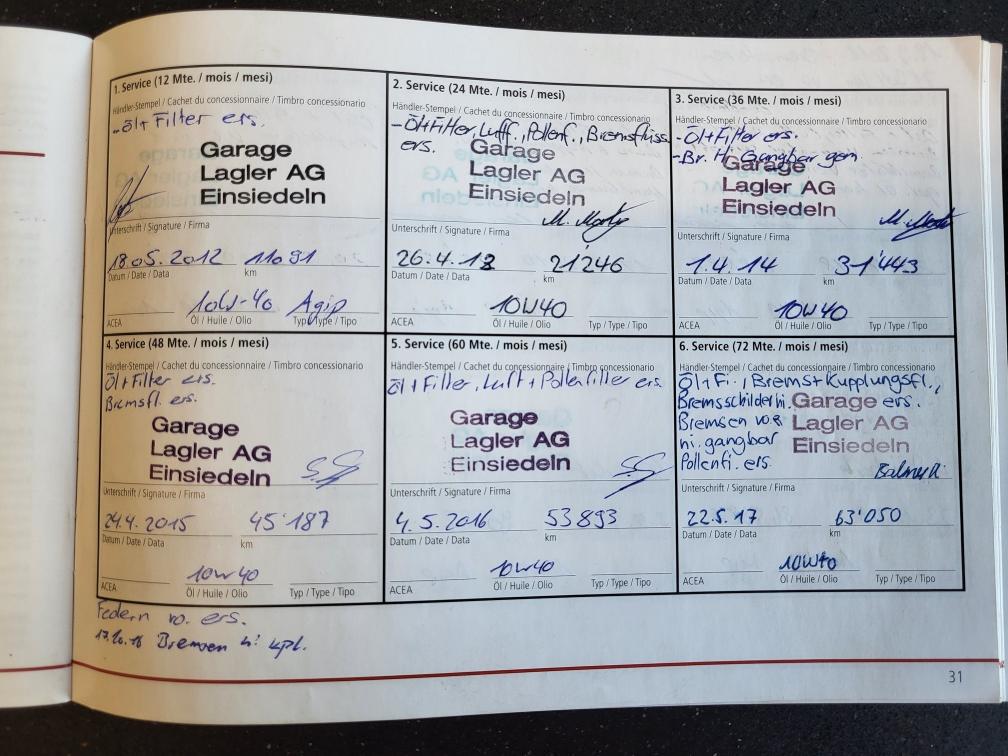 1. Service (12 Mte. / mois / mesi)
Händler-Stempel / Cachet du concessionnaire / Timbro concessionario
-Öl+Filter ers.
Garage
Lagler AG
Einsiedeln
Unterschrift / Signature / Firma
18.05.2012 11091
Datum / Date / Data km
10W-40 Agip
ACEA Öl / Huile / Olio Typ / Type / Tipo
2. Service (24 Mte. / mois / mesi)
Händler-Stempel / Cachet du concessionnaire / Timbro concessionario
-Öl+Filter, Luff., Pollenf., Bremsflüss.
ers.
Garage
Lagler AG
Einsiedeln
Unterschrift / Signature / Firma
26.4.13 21246
Datum / Date / Data km
10W40
ACEA Öl / Huile / Olio Typ / Type / Tipo
3. Service (36 Mte. / mois / mesi)
Händler-Stempel / Cachet du concessionnaire / Timbro concessionario
-Öl+Filter ers.
-Br. Hi. Gangbar gem
Garage
Lagler AG
Einsiedeln
Unterschrift / Signature / Firma
1.4.14 31'443
Datum / Date / Data km
10W40
ACEA Öl / Huile / Olio Typ / Type / Tipo
4. Service (48 Mte. / mois / mesi)
Händler-Stempel / Cachet du concessionnaire / Timbro concessionario
Öl+Filter ers.
Bremsfl. ers.
Garage
Lagler AG
Einsiedeln
Unterschrift / Signature / Firma
24.4.2015 45'187
Datum / Date / Data km
10W40
ACEA Öl / Huile / Olio Typ / Type / Tipo
5. Service (60 Mte. / mois / mesi)
Händler-Stempel / Cachet du concessionnaire / Timbro concessionario
Öl+Filter, Luft + Pollenfilter ers.
Garage
Lagler AG
Einsiedeln
Unterschrift / Signature / Firma
4.5.2016 53893
Datum / Date / Data km
10W40
ACEA Öl / Huile / Olio Typ / Type / Tipo
6. Service (72 Mte. / mois / mesi)
Händler-Stempel / Cachet du concessionnaire / Timbro concessionario
Öl+Fi., Brems+Kupplungsfl.,
Bremsschilder hi. ers.
Bremsen vo &
hi. gangbar
Pollenfi. ers.
Garage
Lagler AG
Einsiedeln
Unterschrift / Signature / Firma
22.5.17 63'050
Datum / Date / Data km
10W40
ACEA Öl / Huile / Olio Typ / Type / Tipo
Federn vo. ers.
17.10.16 Bremsen hi kpl.
31